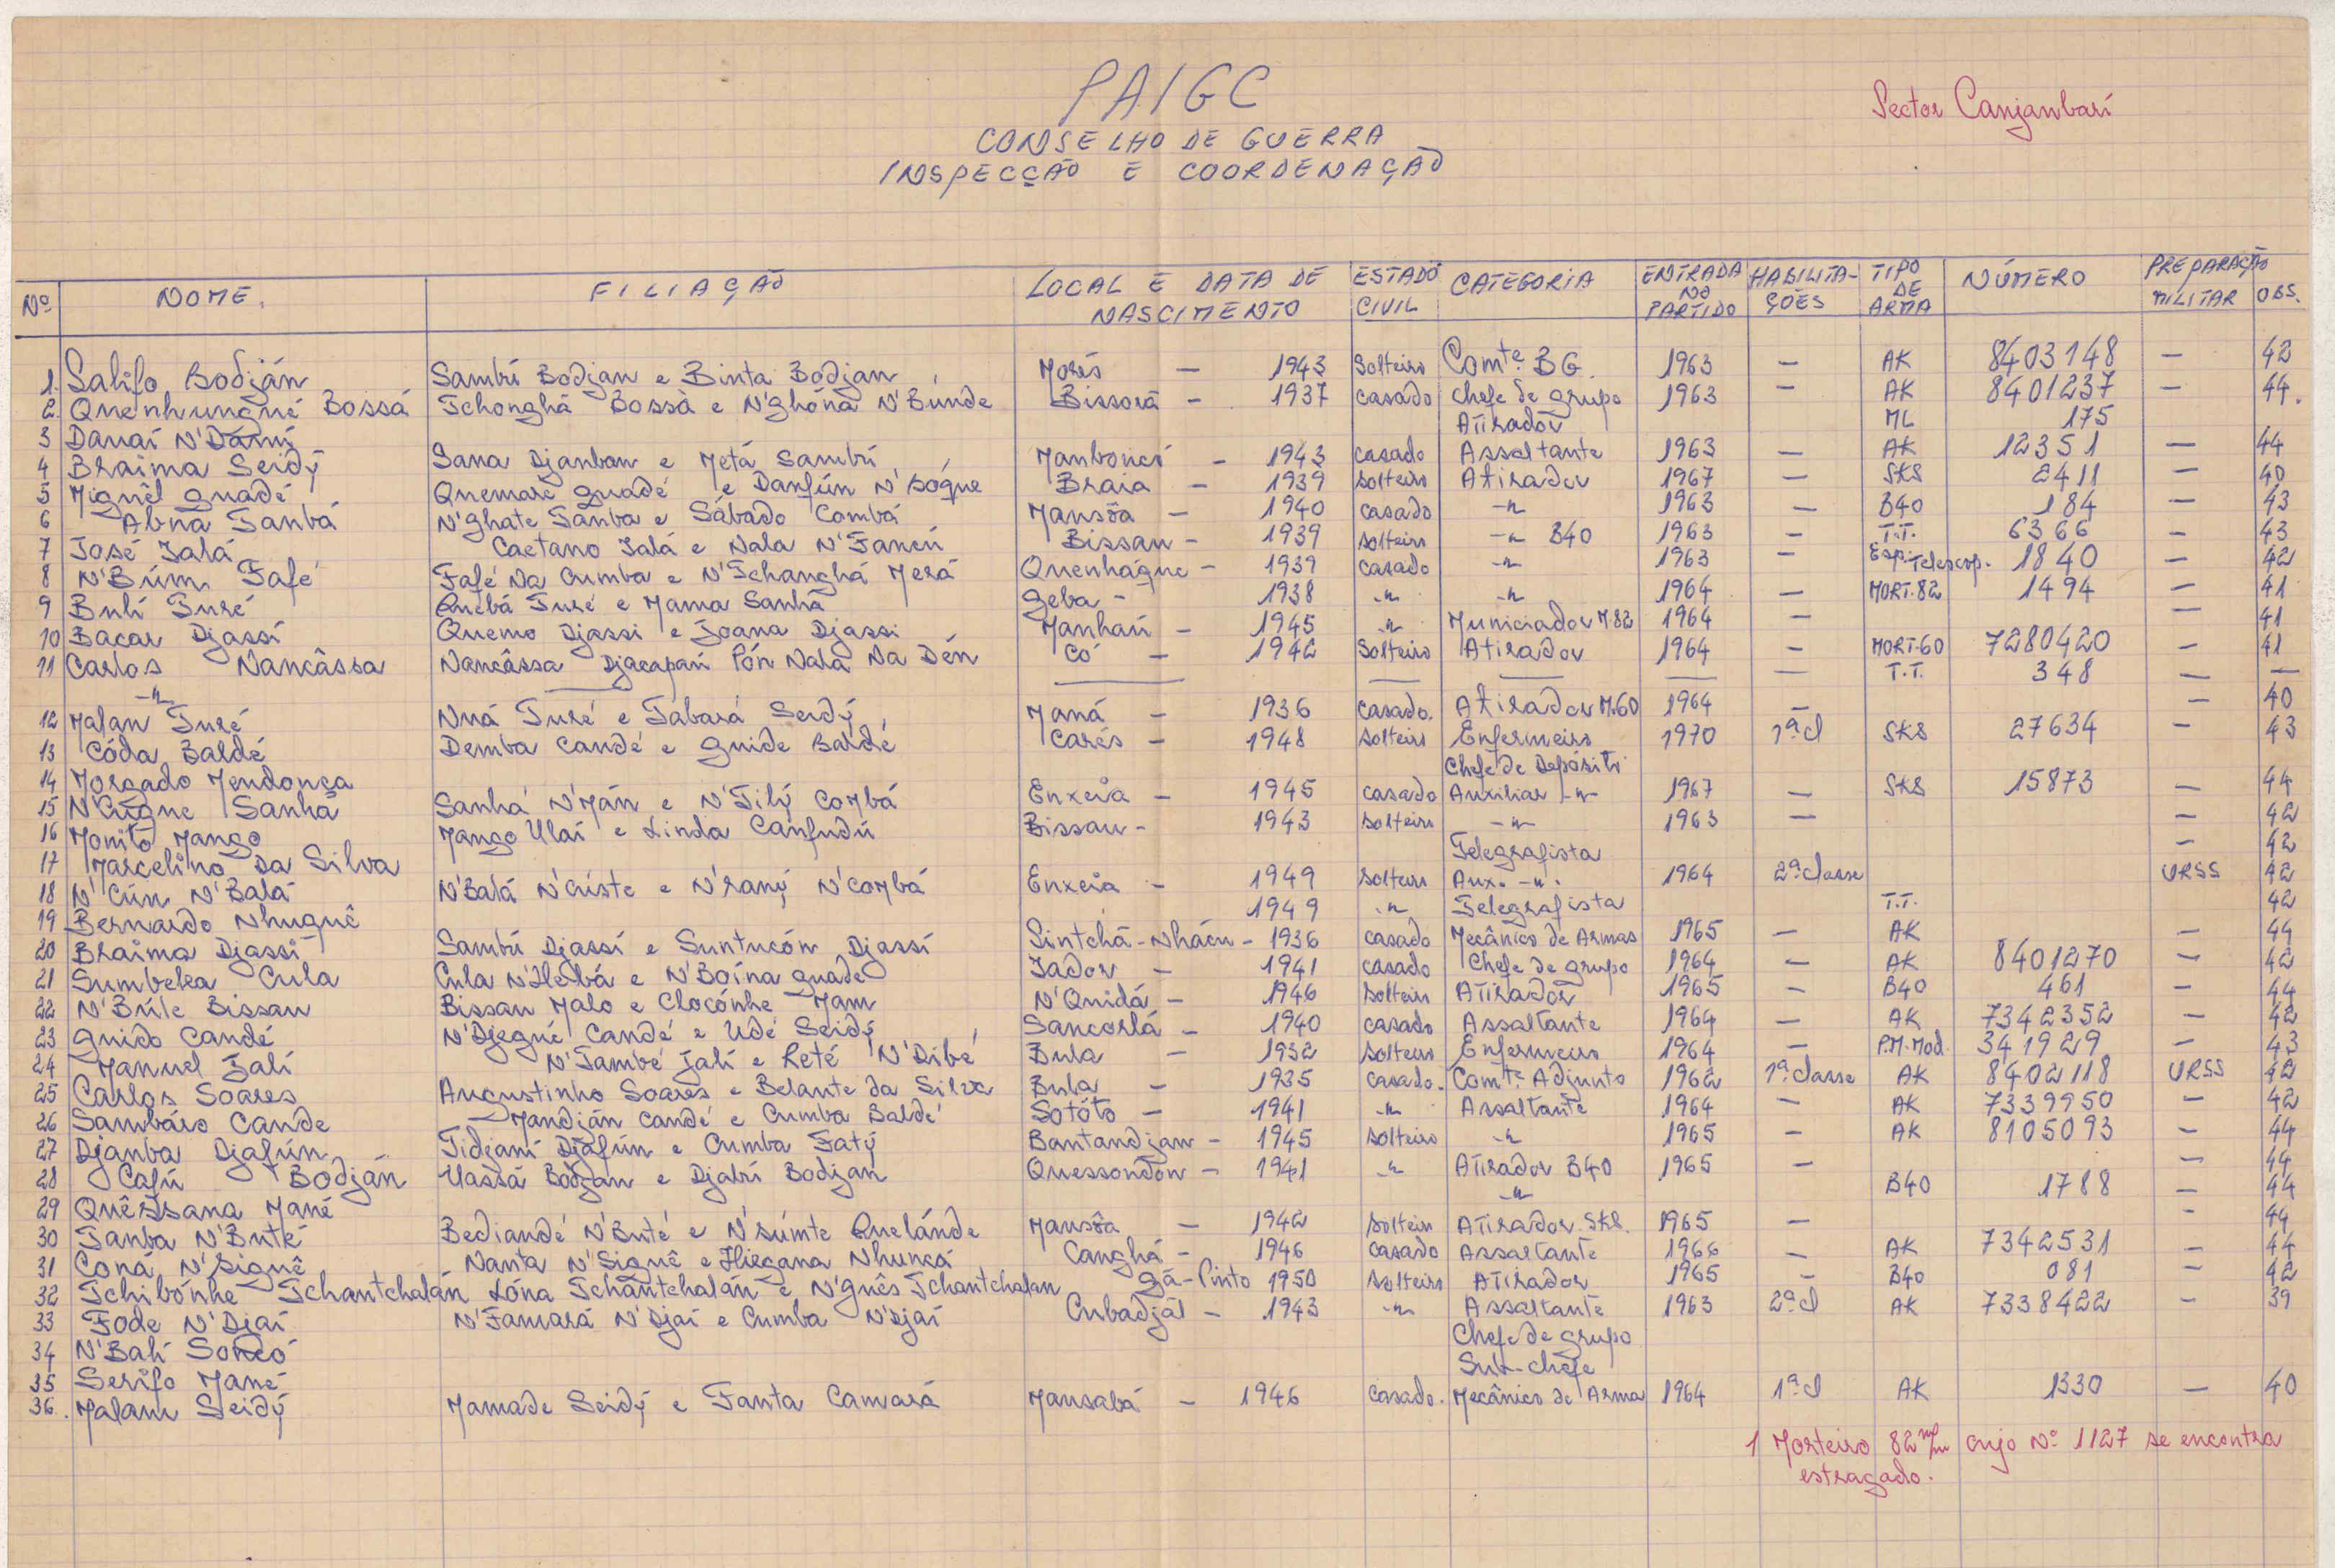 PAIGC
Sector Canjanbarí
CONSELHO DE GUERRA
INSPECÇÃO E COORDENAÇÃO
Nº NOME. FILIAÇÃO LOCAL E DATA DE NASCIMENTO ESTADO CIVIL CATEGORIA ENTRADA NO PARTIDO HABILITA-ÇÕES TIPO DE ARMA NÚMERO PREPARAÇÃO MILITAR OBS.
1. Salifo Bodján Sambú Bodjan e Binta Bodjan Morés — 1943 Solteiro Comte. BG. 1963 — AK 8403148 — 42
2. Quenhungué Bossá Tchonghã Bossà e N'ghóna N'Bunde Bissorã — 1937 casado chefe de grupo 1963 — AK 8401237 — 44.
3 Danaí N'Dámi Atirador ML 175
4 Braima Seidý Sana Djanban e Metá Sambú Manboncó — 1943 casado Assaltante 1963 — AK 12351 — 44
5 Miguêl guadé Quemaré guadé e Danfún N'Bóque Braia — 1939 solteiro Atirador 1967 — SKS 2411 — 40
6 Abna Sanbá N'ghate Sanba e Sábado Combá Mansõa — 1940 casado -n- 1963 — B40 184 — 43
7 José Ialá Caetano Ialá e Nala N'Fancú Bissau — 1939 solteiro -n- B40 1963 — T.T. 6366 — 43
8 N'Búm Fafé Fafé Na Cumba e N'Tchanghá Merá Quenháque — 1939 casado -n- 1963 — Esp. Telescop. 1840 — 42
9 Buli Turé Quebá Turé e Mama Sanhã geba — 1938 -n- -n- 1964 — MORT.82 1494 — 41
10 Bacar Djassí Quemo Djassi e Joana Djassi Manhaú — 1945 -n- Municiador M.82 1964 — — 41
11 Carlos Nancâssa Nancâssa Djacapari Pón Nala Na Dén Có — 1942 Solteiro Atirador 1964 — MORT.60 7280420 — 41
-n- — — — — — — T.T. 348 — —
12 Malan Turé Nná Turé e Tábará Seidý Maná — 1936 casado. Atirador M.60 1964 — — 40
13 Códa Baldé Demba Candé e guide Baldé Carés — 1948 solteiro Enfermeiro 1970 1ª cl SKS 27634 — 43
14 Morgado Mendonça Chefe de Depósito
15 N'Cúgne Sanhá Sanhá N'Mán e N'Tilý Combá Enxeia — 1945 casado Auxiliar -n- 1967 — SKS 15873 — 44
16 Monito Mango Mango Ulaí e Linda Canfudú Bissau — 1943 solteiro -n- 1963 — — 42
17 Marcelino Da Silva Telegrafista — 42
18 N'Cún N'Balá N'Balá N'Cúste e N'raný N'Combá Enxeia — 1949 solteiro Aux. -n- 1964 2ª classe URSS 42
19 Bernardo Nhuguê 1949 -n- Telegrafista T.T. 42
20 Braima Djassí Sambú Djassí e Suntucón Djassí Sintchã-Nhácu — 1936 casado Mecânico de Armas 1965 — AK — 44
21 Sumbeka Cula Cula N'Hebá e N'Boína guade Iador — 1941 casado Chefe de grupo 1964 — AK 8401270 — 42
22 N'Búle Bissau Bissau Malo e Clocónhe Mam N'Quidá — 1946 solteiro Atirador 1965 — B40 461 — 44
23 guido Candé N'Djegué Candé e Udé Seidý Sancorlá — 1940 casado Assaltante 1964 — AK 7342352 — 42
24 Manuel Jali N'També Jali e Reté N'Dibé Bula — 1932 solteiro Enfermeiro 1964 — P.M.Mod. 341929 — 43
25 Carlos Soares Augustinho Soares e Belante da Silva Bula — 1935 casado. Comte. Adjunto 1962 1ª classe AK 8402118 URSS 42
26 Sambáro Cande Mandján Candé e Cumba Baldé Sotóto — 1941 -n- Assaltante 1964 — AK 7339950 — 42
27 Djanba Djafún Tidjaní Djafún e Cumba Fatý Bantandjan — 1945 solteiro -n- 1965 — AK 8105093 — 44
28 Cafú Bodján Uassá Bodjan e Djabú Bodjan Quessondón — 1941 -n- Atirador B40 1965 — — 44
29 Quêssana Mané -n- B40 1788 — 44
30 Tanba N'Buté Bediandé N'Buté e N'súmte Quelánde Mansõa — 1942 solteiro Atirador SKS. 1965 — — 44
31 Coná N'Siguê Nanta N'Siguê e Hiegana Nhuncá Canghá — 1946 casado Assaltante 1966 — AK 7342531 — 44
32 Tchibónhe Tchantchalán Lóna Tchantchalán e N'guês Tchantchalan gã-Pinto 1950 solteiro Atirador 1965 — B40 081 — 42
33 Fode N'Djaí N'Famará N'Djaí e Cumba N'Djaí Cubadjál — 1943 -n- Assaltante 1963 2ª cl AK 7338422 — 39
34 N'Bali Soncó Chefe de grupo
35 Serifo Mané Sub-chefe
36. Malam Seidý Mamade Seidý e Fanta Camará Mansabá — 1946 casado. Mecânico de Arma 1964 1ª cl AK 1330 — 40
1 Morteiro 82 m/m cujo Nº 1127 se encontra
estragado.